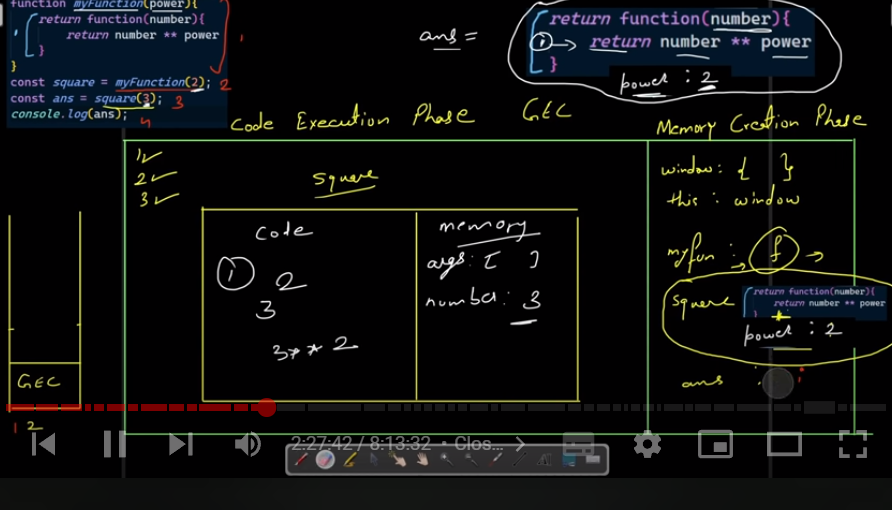 function myFunction(power){
return function(number){
return number ** power
}
}
const square = myFunction(2); 2
const ans = square(3); 3
console.log(ans); 4
ans =
return function(number){
1 → return number ** power
}
power : 2
Code Execution Phase GEC
Memory Creation Phase
1✓
2✓
3✓
square
code
1 2
3
3**2
memory
args: [ ]
number: 3
window: { }
this : window
myfun : f →
square
return function(number){
return number ** power
}
power : 2
ans :
GEC
1 2
2:27:42 / 8:13:32 • Clos... >